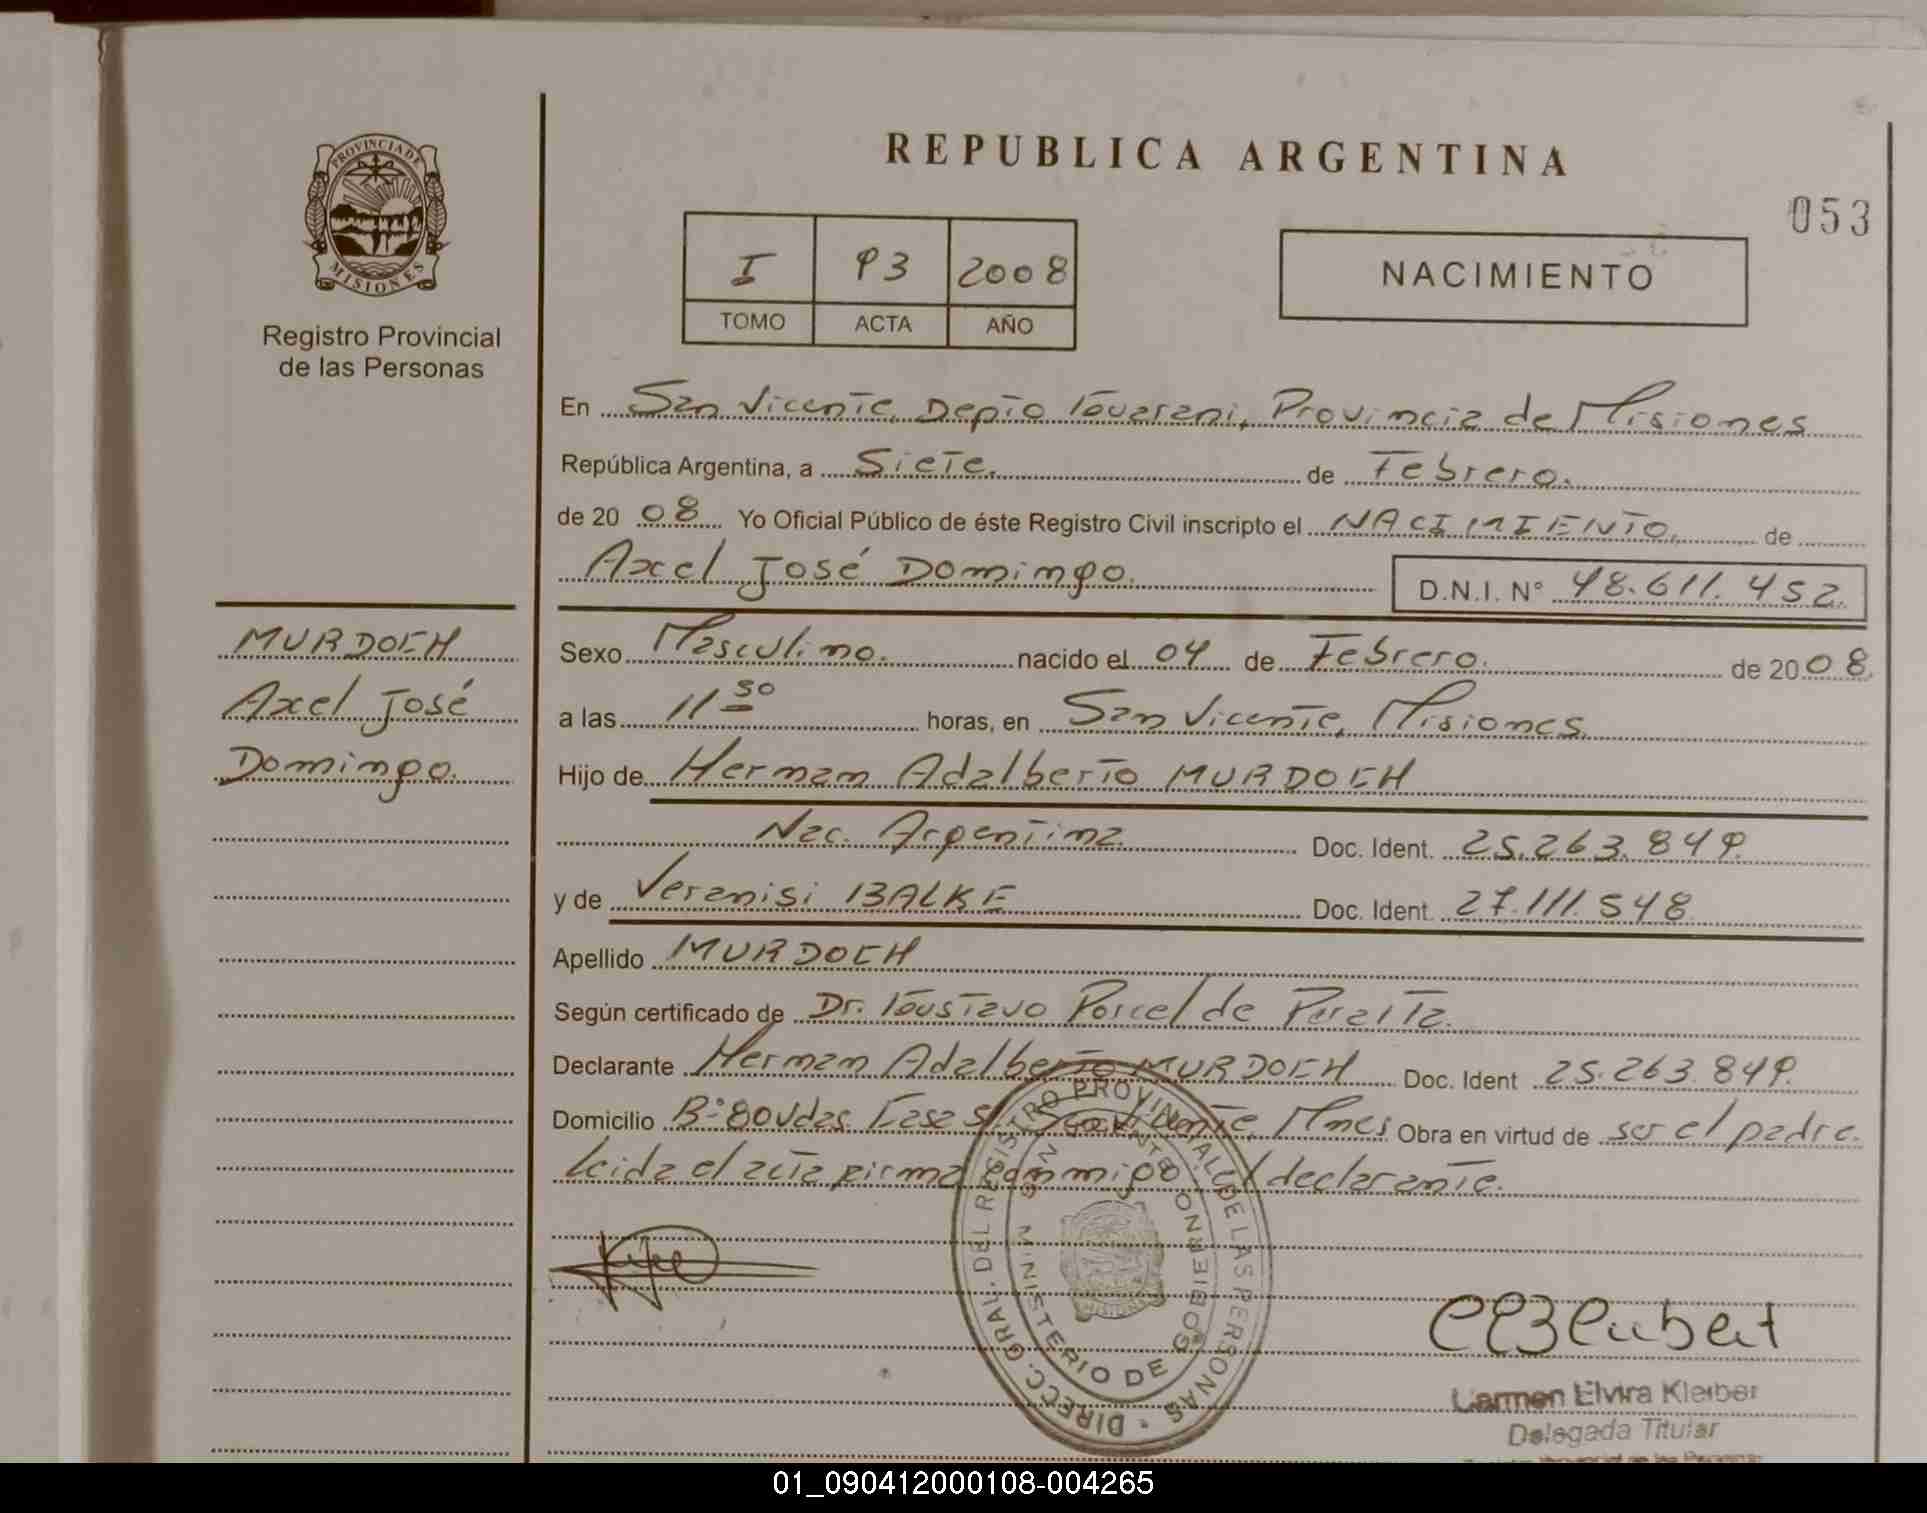 REPUBLICA ARGENTINA
PROVINCIA DE
MISIONES
Registro Provincial
de las Personas
053
I 93 2008
TOMO ACTA AÑO
NACIMIENTO
En San Vicente, Depto Guarani, Provincia de Misiones
República Argentina, a Siete. de Febrero.
de 2008 Yo Oficial Público de éste Registro Civil inscripto el NACIMIENTO, de
Axel José Domingo. D.N.I. Nº 48.611.452.
MURDOCH
Axel José
Domingo.
Sexo Masculino. nacido el 04 de Febrero. de 2008.
a las 11 30 horas, en San Vicente, Misiones.
Hijo de Hernan Adalberto MURDOCH
Nac. Argentina. Doc. Ident. 25.263.849.
y de Veranisi BALKE Doc. Ident. 27.111.548
Apellido MURDOCH
Según certificado de Dr. Gustavo Porcel de Peralta.
Declarante Hernan Adalberto MURDOCH Doc. Ident 25.263.849.
Domicilio Bº 80 Vdas. Casa San Vicente, Mnes Obra en virtud de ser el padre.
Leida el acta firma conmigo el declarante.
DIRECC. GRAL. DEL REGISTRO PROVINCIAL DE LAS PERSONAS
MINISTERIO DE GOBIERNO
SAN VICENTE
MISIONES
Carmen Elvira Kleiber
Delegada Titular
01_090412000108-004265